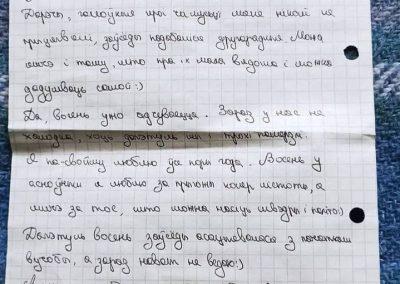 Дарэчы, галоўныя героі ча мяне ніколі не
прыцягвалі, заўсёды падабаліся другарадныя. Можа
яшчэ і таму, што пра іх мала вядома і можна
дадумваць самой:)
Да, восень ужо адчуваецца. Зараз у нас не
халодна, хоць дагэтуль і трохі
Я па-свойму люблю ўсе поры года. Восень у
асноўным я люблю за колер лістоты, а
яшчэ за тое, што можна насіць швэдры і паліто:)
Дагэтуль восень заўсёды асацыявалася з пачаткам
вучобы, а зараз нават не ведаю:)